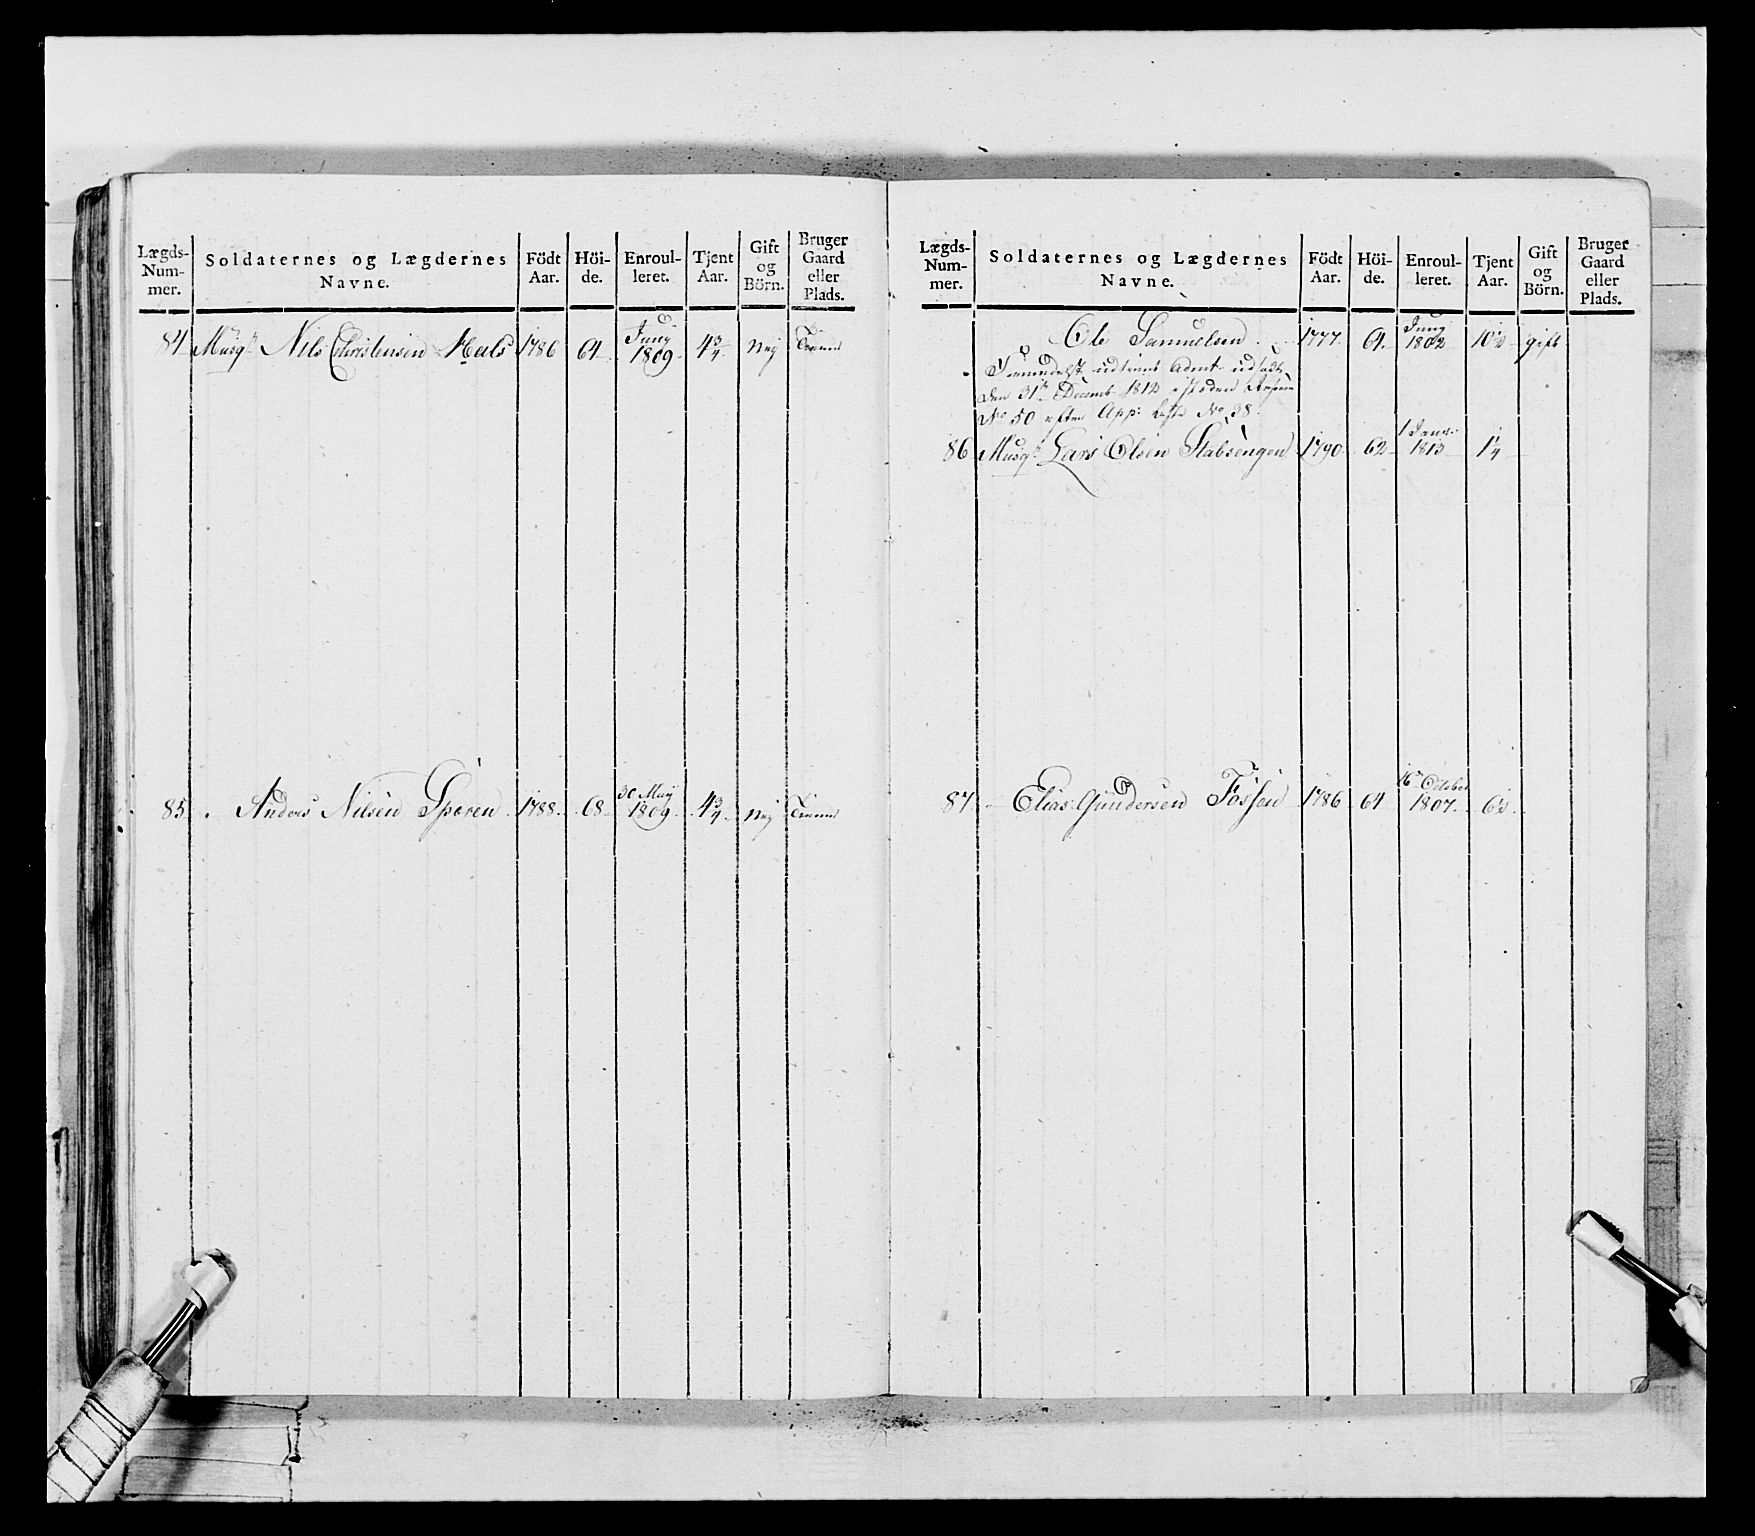 Lægds-Num-mer. Soldaternes og Lægdernes Navne. Födt Aar. Höi-de. Enroul-leret. Tjent Aar. Gift og Börn. Bruger Gaard eller Plads.
84 Musq. Nils Christensen Hals 1786 64 Juny 1809 4 3/4 Nej
85 Anders Nilsen Sporen 1788 68 30 May 1809 4 3/4 Nej
Lægds-Num-mer. Soldaternes og Lægdernes Navne. Födt Aar. Höi-de. Enroul-leret. Tjent Aar. Gift og Börn. Bruger Gaard eller Plads.
Ole Samuelsen 1777 64 Juny 1802 10½ gift
udtient
den 31te Decemb 1812
No 50 efter App: Liste No 38.
86 Musq. Lars Olsen Stabsengen 1790 62 1 Janr. 1813 1¼
87 Elias Gundersen Fossen 1786 64 16 October 1807. 6½